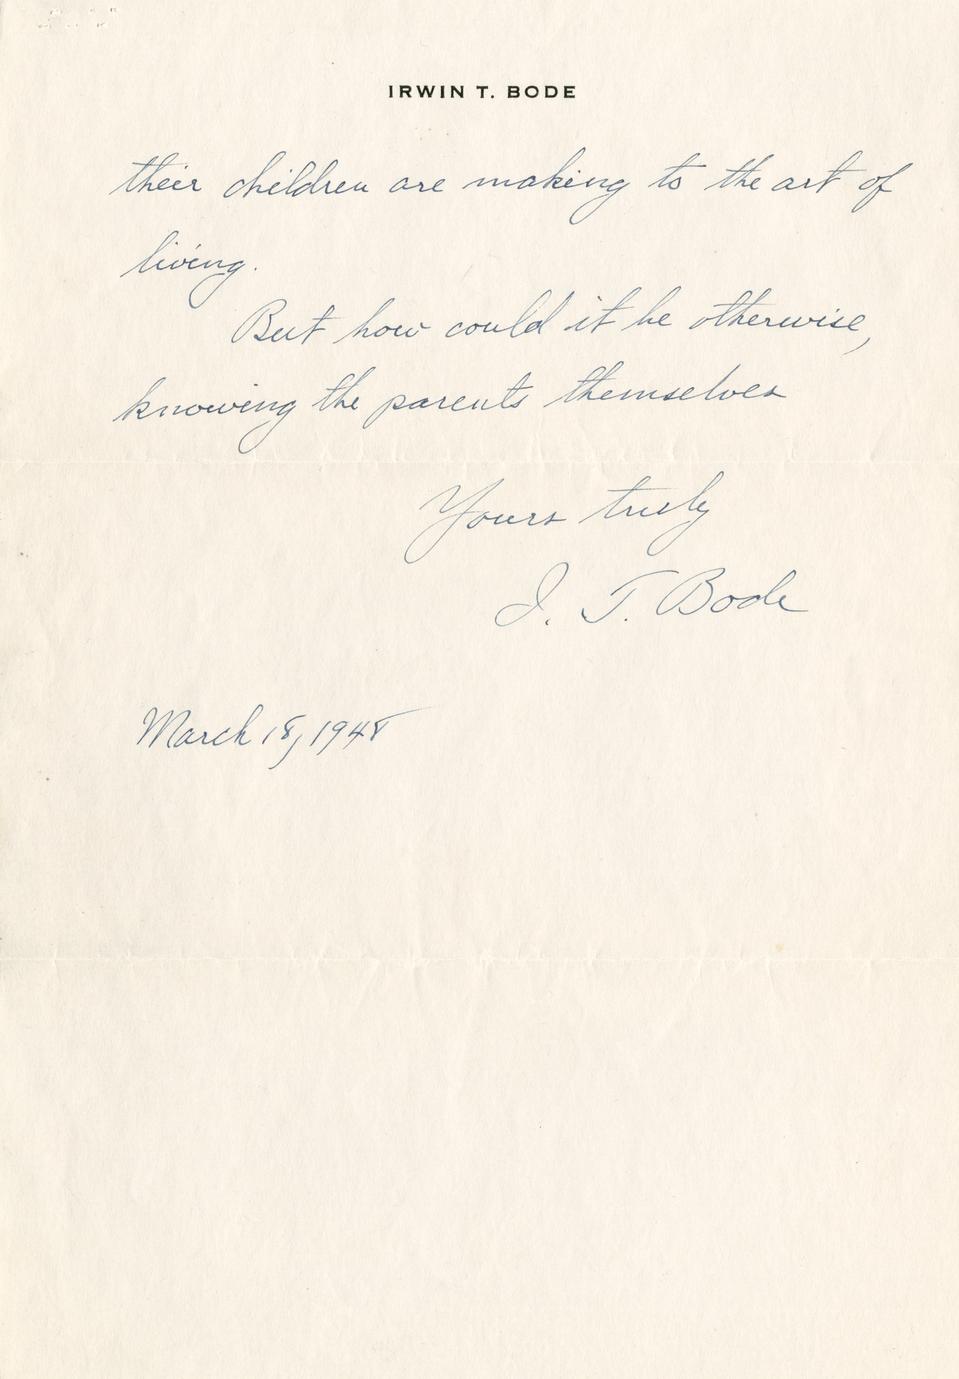 IRWIN T. BODE
their children are making to the art of
living.
But how could it be otherwise,
knowing the parents themselves
Yours truly
I. T. Bode
March 18, 1948